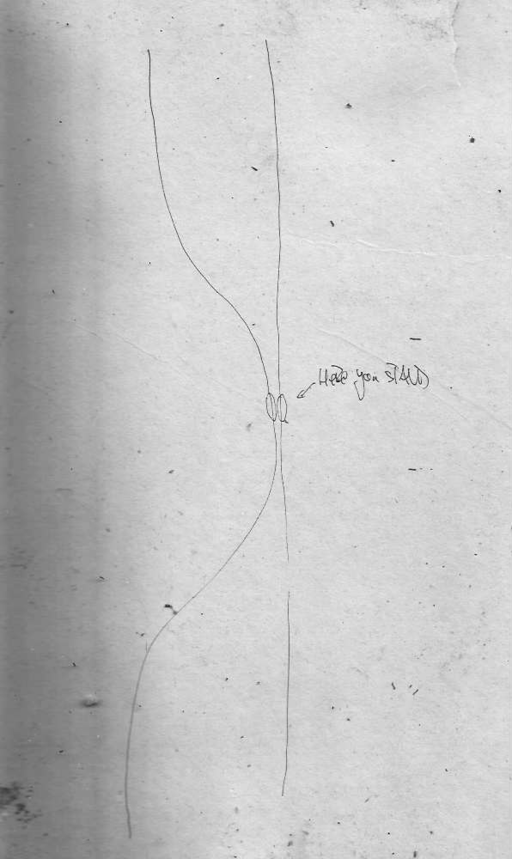 Here you STAND